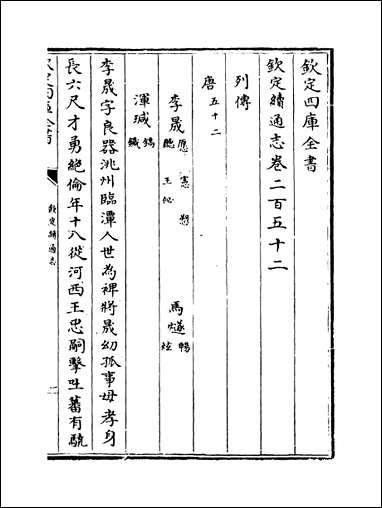 欽定四庫全書
欽定續通志卷二百五十二
列傳
唐五十二
李晟 愿 憲 愬
聽 王佖
馬燧 暢
炫
渾瑊 鎬
鐬
李晟字良器洮州臨潭人世為裨將晟幼孤事母孝身
長六尺才勇絕倫年十八從河西王忠嗣擊吐蕃有驍
欽定續通志
一